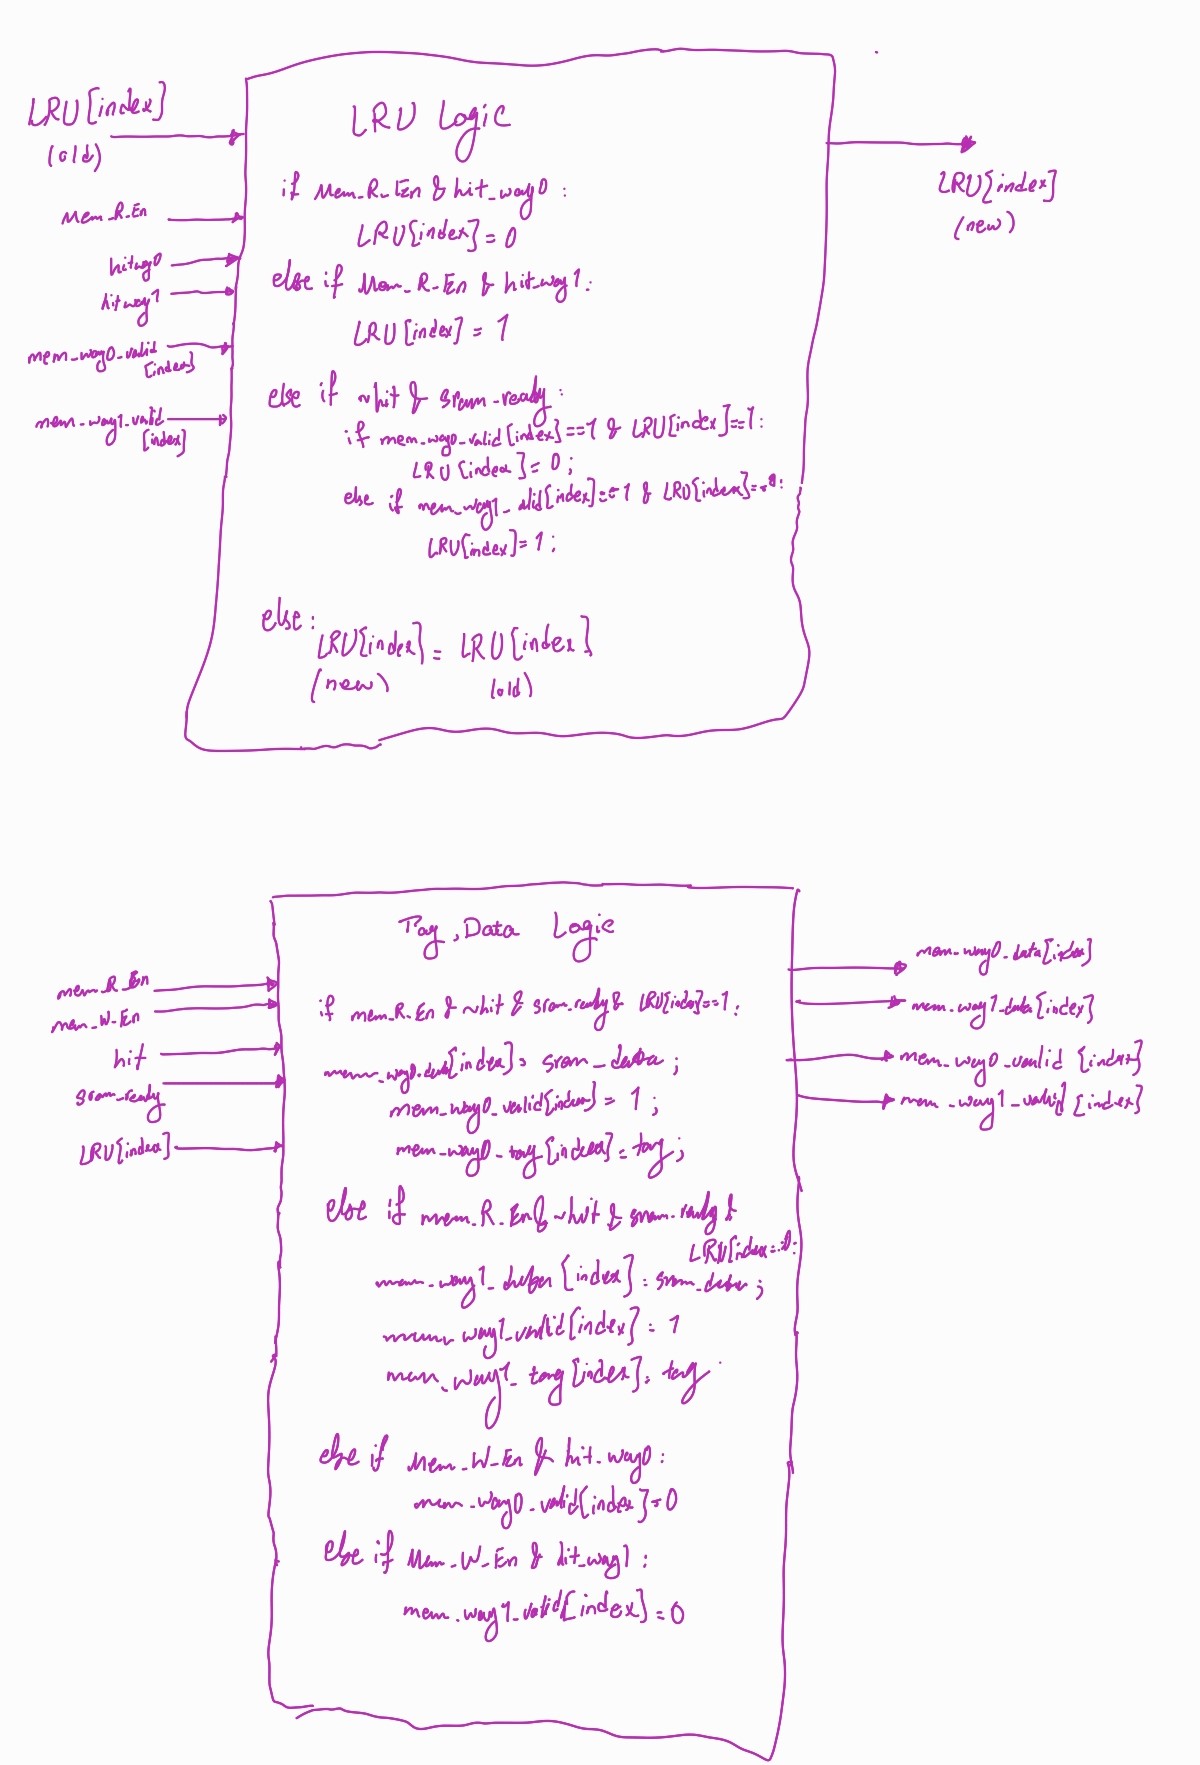 LRU[index]
(old)
Mem_R_En
hitway0
hitway1
mem_way0_valid
[index]
mem_way1_valid
[index]
LRU Logic
if Mem_R_En & hit_way0 :
LRU[index] = 0
else if Mem_R_En & hit_way1 :
LRU[index] = 1
else if ~hit & sram_ready :
if mem_way0_valid[index]==1 & LRU[index]==1 :
LRU[index] = 0;
else if mem_way1_alid[index]==1 & LRU[index]==0 :
LRU[index] = 1;
else :
LRU[index] = LRU[index]
(new) (old)
LRU[index]
(new)
mem_R_En
mem_W_En
hit
sram_ready
LRU[index]
Tag, Data Logic
if mem_R_En & ~hit & sram_ready & LRU[index]==1 :
mem_way0_data[index] = sram_data ;
mem_way0_valid[index] = 1 ;
mem_way0_tag[index] = tag ;
else if mem_R_En & ~hit & sram_ready &
LRU[index==0 :
mem_way1_data[index] = sram_data ;
mem_way1_valid[index] = 1
mem_way1_tag[index] = tag
else if Mem_W_En & hit_way0 :
mem_way0_valid[index] = 0
else if Mem_W_En & hit_way1 :
mem_way1_valid[index] = 0
mem_way0_data[index]
mem_way1_data[index]
mem_way0_valid [index]
mem_way1_valid [index]